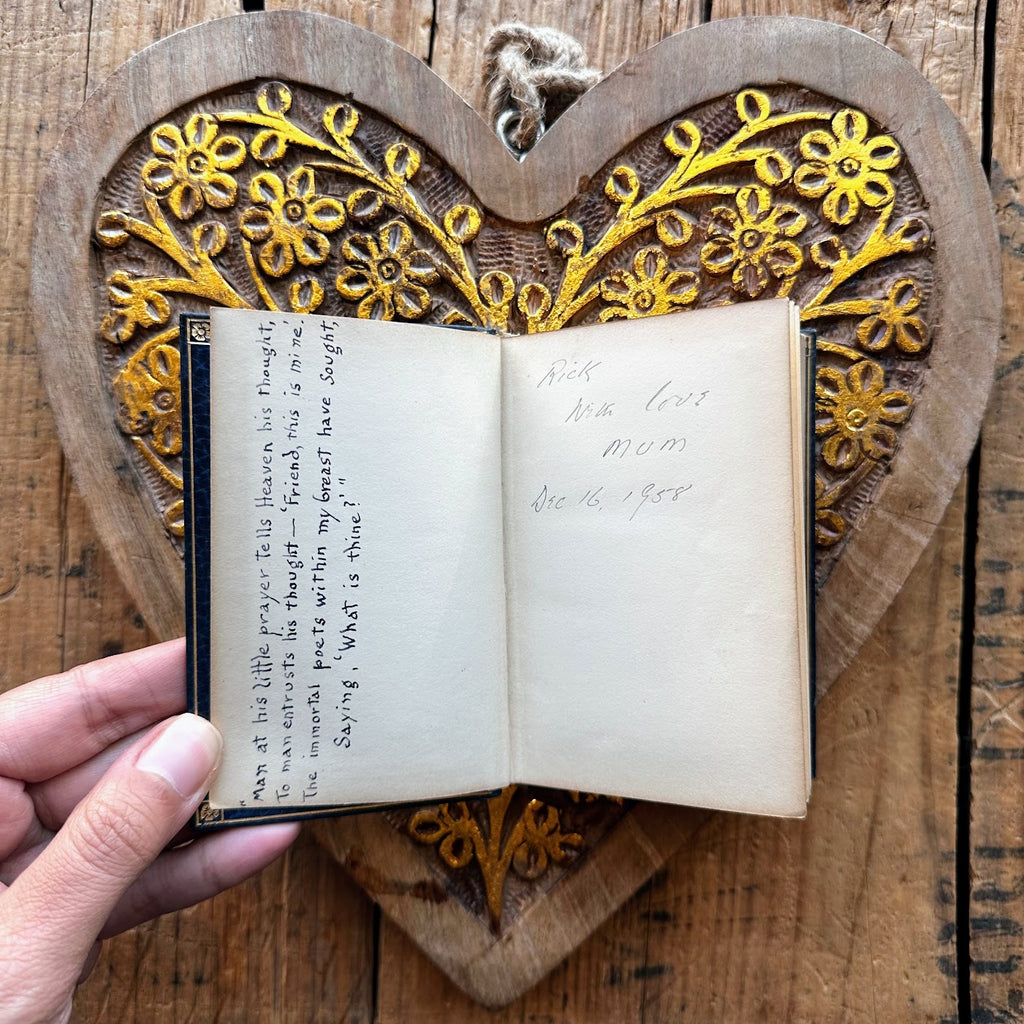 "Man at his little prayer tells Heaven his thought,
To man entrusts his thought — 'Friend, this is mine.'
The immortal poets within my breast have sought,
Saying, 'What is thine?'"
Rick
With love
MUM
Dec 16, 1958